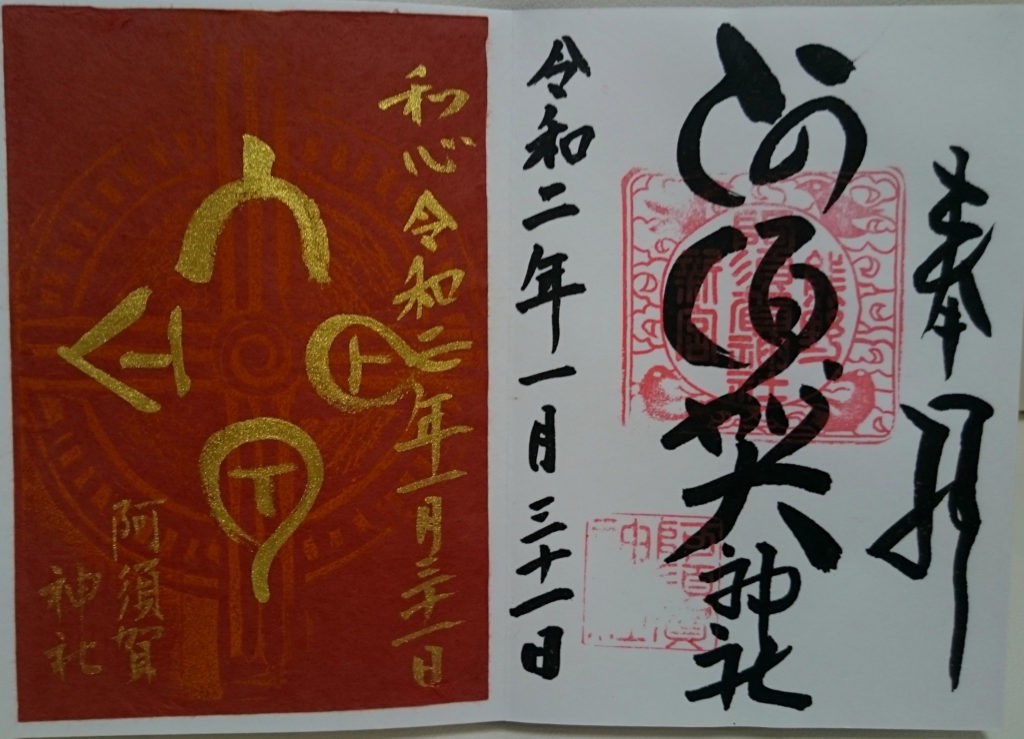 奉拝
阿須賀
神社
令和二年一月三十一日
和心令和二年一月三十一日
阿須賀
神社